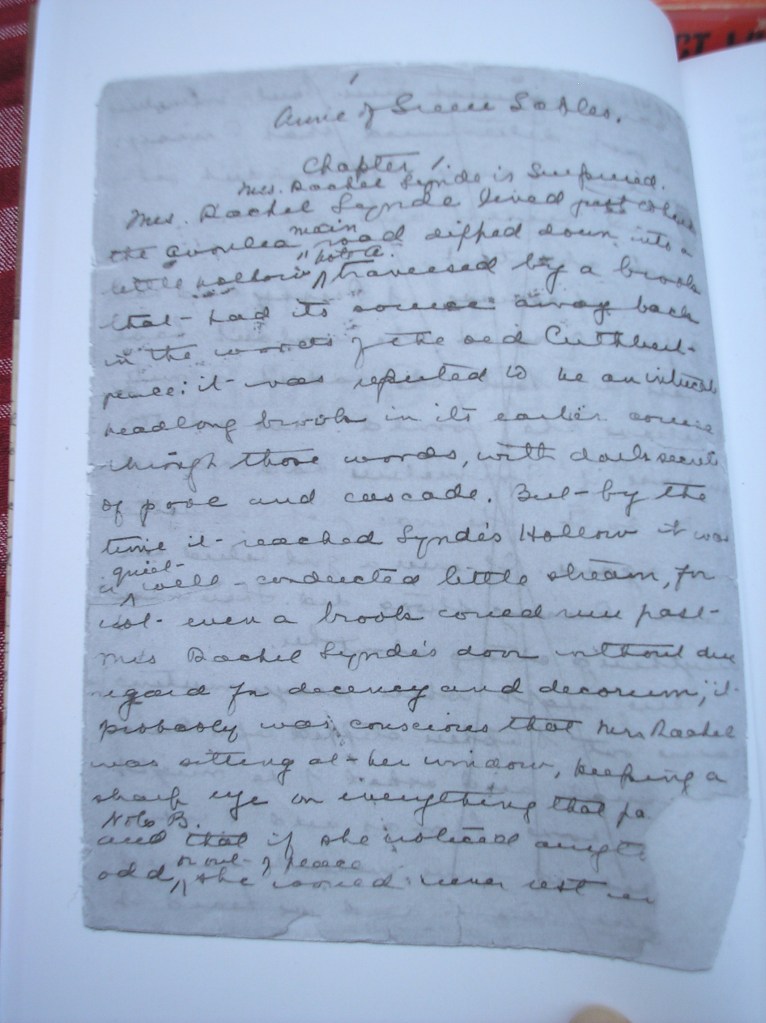 1
Anne of Green Gables.
Chapter 1.
Mrs. Rachel Lynde is Surprised.
Mrs. Rachel Lynde lived just where
main
the Avonlea road dipped down into a
Note A.
little hollow traversed by a brook
that had its source away back
in the woods of the old Cuthbert
place; it was reputed to be an intricate
headlong brook in its earlier course
through those woods, with dark secrets
of pool and cascade. But by the
time it reached Lynde's Hollow it was
quiet
a well-conducted little stream, for
not even a brook could run past
Mrs Rachel Lynde's door without due
regard for decency and decorum; it
probably was conscious that Mrs Rachel
was sitting at her window, keeping a
sharp eye on everything that pa
Note B.
and that if she noticed anyt
or out of place
odd, she would never rest un
CT